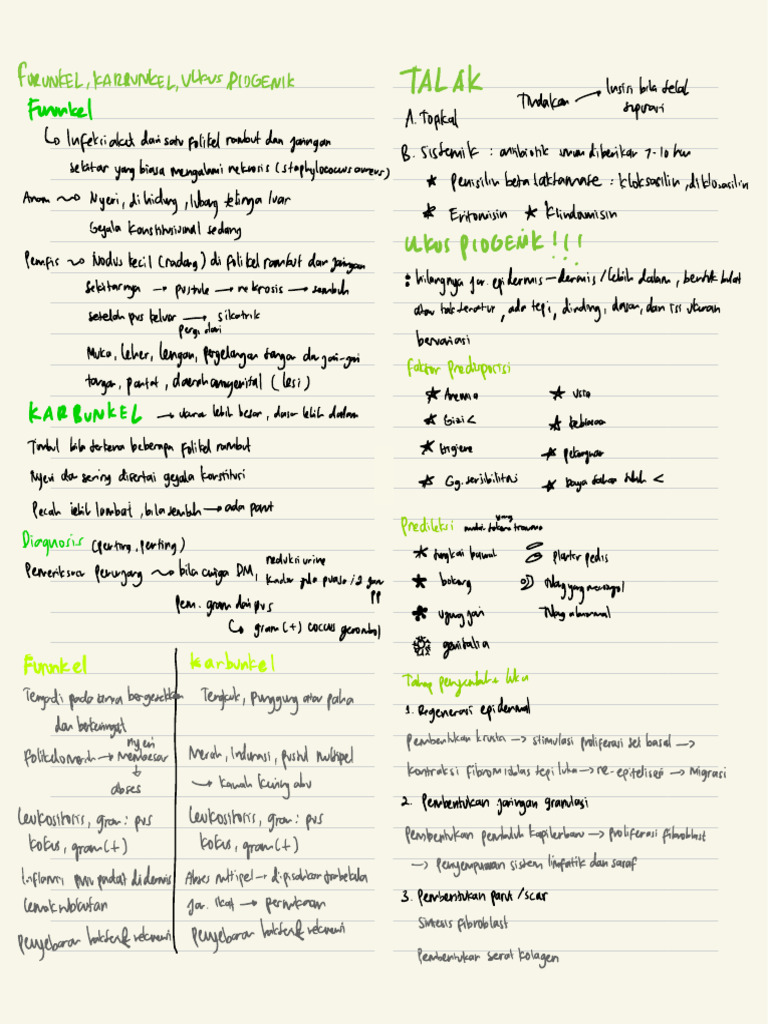 FURUNKEL, KARBUNKEL, ULKUS PIOGENIK
Furunkel
↳ Infeksi akut dari satu folikel rambut dan jaringan
sekitar yang biasa mengalami nekrosis (staphylococcus aureus)
Anam ~ Nyeri, di hidung, lubang telinga luar
Gejala konstitusional sedang
Pemfis ~ Nodus kecil (radang) di folikel rambut dan jaringan
sekitarnya → pustule → nekrosis → sembuh
setelah pus keluar → sikatrik
pergi dari
Muka, leher, lengan, pergelangan tangan dan jari-jari
tangan, pantat, daerah anogenital (lesi)
KARBUNKEL → ukuran lebih besar, dasar lebih dalam
Timbul bila terkena beberapa folikel rambut
Nyeri dan sering disertai gejala konstitusi
Pecah lebih lambat, bila sembuh → ada parut
Diagnosis (penting, penting)
Pemeriksaan penunjang ~ bila curiga DM, reduksi urine
kadar gula puasa / 2 jam
PP
Pem. gram dari pus
↳ gram (+) coccus gerombol
Furunkel
Terjadi pada area bergesekan
dan berkeringat
Folikel merah → nyeri membesar
↓
abses
Leukositosis, gram: pus
kokus, gram (+)
Inflamasi, pus padat di dermis
Lemak subkutan
Penyebaran bakteri & rekurensi
Karbunkel
Tengkuk, punggung atau paha
Merah, Indurasi, pustul multipel
→ kawah kuning abu
Leukositosis, gram: pus
kokus, gram (+)
Abses multipel → dipisahkan trabekula
Jar. Ikat → permukaan
Penyebaran bakteri & rekurensi
TALAK
Tindakan → Insisi bila telah
supurasi
A. Topikal
B. Sistemik : antibiotik umum diberikan 7-10 hari
* Penisilin beta laktamase : kloksasilin, dikloksasilin
* Eritomisin * Klindamisin
ULKUS PIOGENIK !!!
: hilangnya jar. epidermis – dermis / lebih dalam, bentuk bulat
atau tak teratur, ada tepi, dinding, dasar, dan isi ukuran
bervariasi
Faktor Predisposisi
* Anemia
* Gizi <
* Higiene
* Gg. sensibilitas
* Usia
* kebiasaan
* pekerjaan
* Daya tahan tubuh <
Predileksi yang mudah terkena trauma
* tungkai bawah
* bokong
* ujung jari
* genitalia
plantar pedis
Tulang yang menonjol
Tulang abnormal
Tahap penyembuhan luka
1. Regenerasi epidermal
Pembentukan krusta → stimulasi proliferasi sel basal →
kontraksi fibromioblas tepi luka → re-epitelisasi → Migrasi
2. Pembentukan jaringan granulasi
Pembentukan pembuluh kapiler baru → Proliferasi fibroblast
→ Penyempurnaan sistem limfatik dan saraf
3. Pembentukan parut / scar
Sintesis fibroblast
Pembentukan serat kolagen